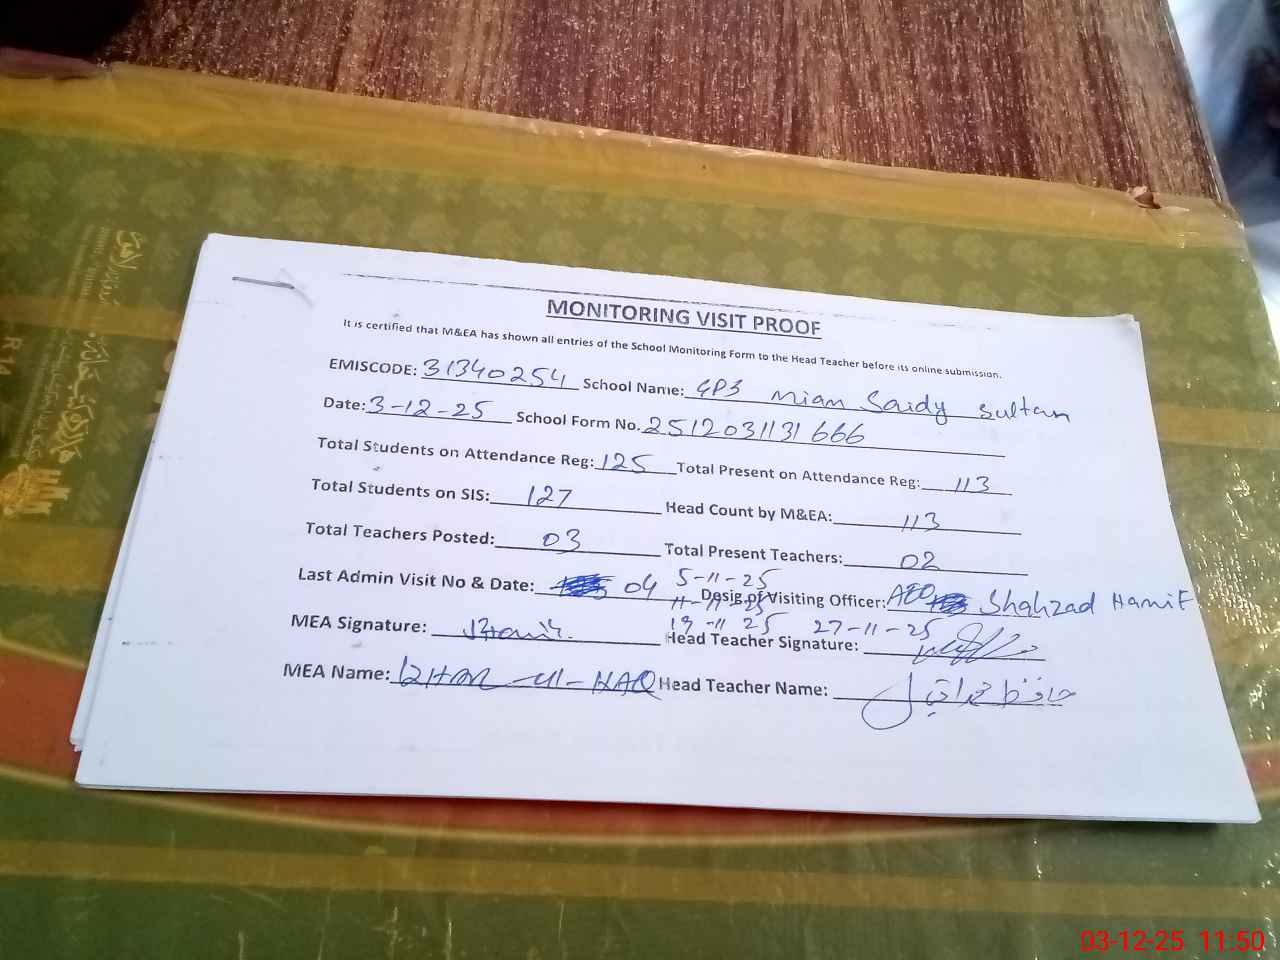 MONITORING VISIT PROOF
It is certified that M&EA has shown all entries of the School Monitoring Form to the Head Teacher before its online submission.
EMISCODE: 31340254 School Name: GPS Mian Saidy Sultan
Date: 3-12-25 School Form No. 2512031131666
Total Students on Attendance Reg: 125 Total Present on Attendance Reg: 113
Total Students on SIS: 127 Head Count by M&EA: 113
Total Teachers Posted: 03 Total Present Teachers: 02
Last Admin Visit No & Date: 04 5-11-25 Desig.of Visiting Officer: AEO Shahzad Hanif
11-11-25
19-11-25 27-11-25
MEA Signature: Head Teacher Signature:
MEA Name: -ul-HAQ Head Teacher Name: حافظ
R14
03-12-25 11:50